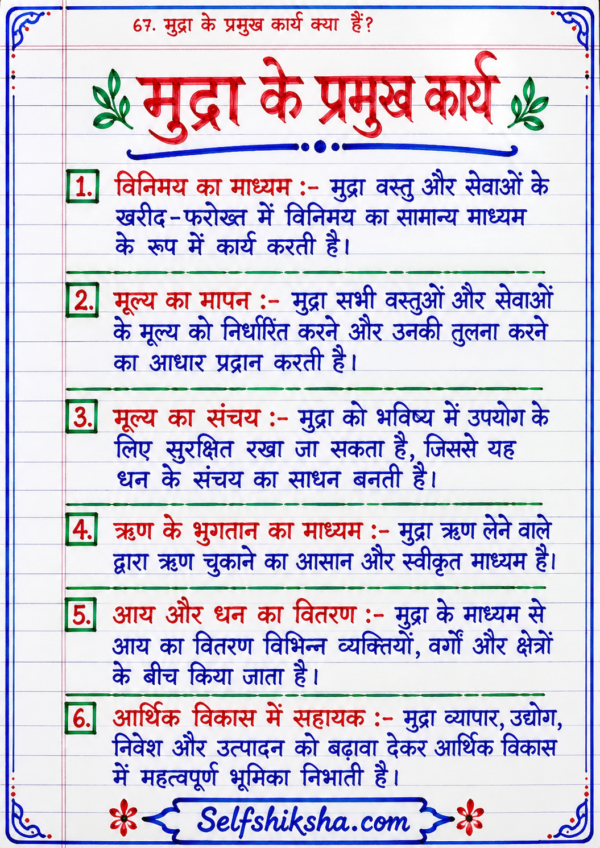 67. मुद्रा के प्रमुख कार्य क्या हैं?
मुद्रा के प्रमुख कार्य
1. विनिमय का माध्यम :- मुद्रा वस्तु और सेवाओं के
खरीद-फरोख्त में विनिमय का सामान्य माध्यम
के रूप में कार्य करती है।
2. मूल्य का मापन :- मुद्रा सभी वस्तुओं और सेवाओं
के मूल्य को निर्धारित करने और उनकी तुलना करने
का आधार प्रदान करती है।
3. मूल्य का संचय :- मुद्रा को भविष्य में उपयोग के
लिए सुरक्षित रखा जा सकता है, जिससे यह
धन के संचय का साधन बनती है।
4. ऋण के भुगतान का माध्यम :- मुद्रा ऋण लेने वाले
द्वारा ऋण चुकाने का आसान और स्वीकृत माध्यम है।
5. आय और धन का वितरण :- मुद्रा के माध्यम से
आय का वितरण विभिन्न व्यक्तियों, वर्गों और क्षेत्रों
के बीच किया जाता है।
6. आर्थिक विकास में सहायक :- मुद्रा व्यापार, उद्योग,
निवेश और उत्पादन को बढ़ावा देकर आर्थिक विकास
में महत्वपूर्ण भूमिका निभाती है।
Selfshiksha.com